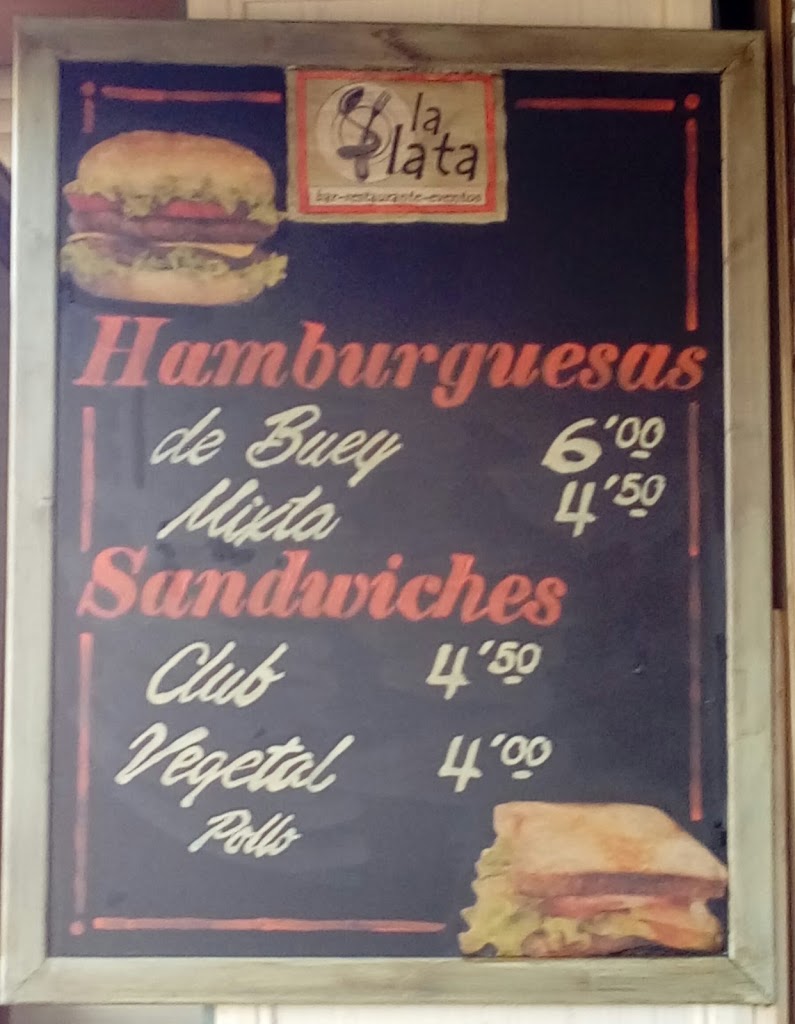 la
Plata
bar-restaurante-eventos
Hamburguesas
de Buey 6'00
Mixta 4'50
Sandwiches
Club 4'50
Vegetal 4'00
Pollo